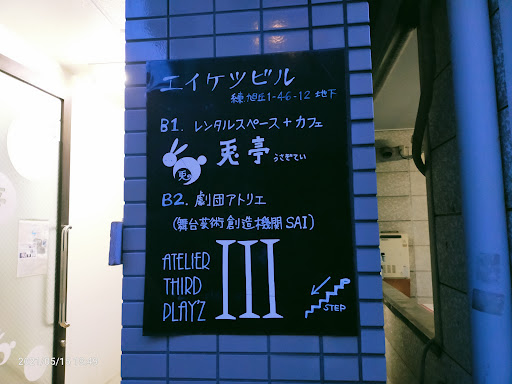 エイケツビル
練 旭丘1-46-12 地下
B1. レンタルスペース+カフェ
兎
兎亭 うさぎてい
B2. 劇団アトリエ
(舞台芸術創造機関SAI)
ATELIER
THIRD
PLAY'Z
III
STEP